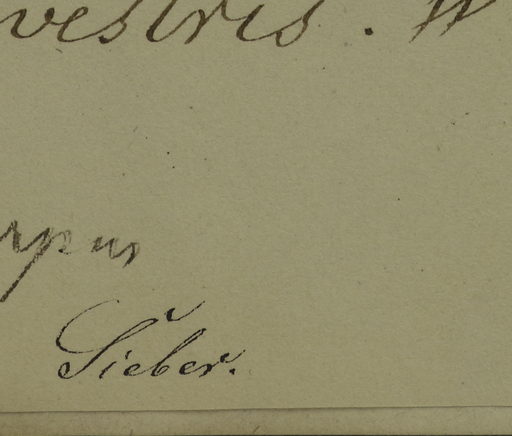 vestris. W
rpus
Sieber.